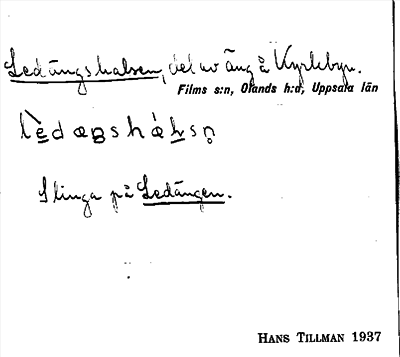 Ledängshalsen, del av äng å Kyrkbyn.
Films s:n, Olands h:d, Uppsala län
Slinga på Ledängen.
HANS TILLMAN 1937